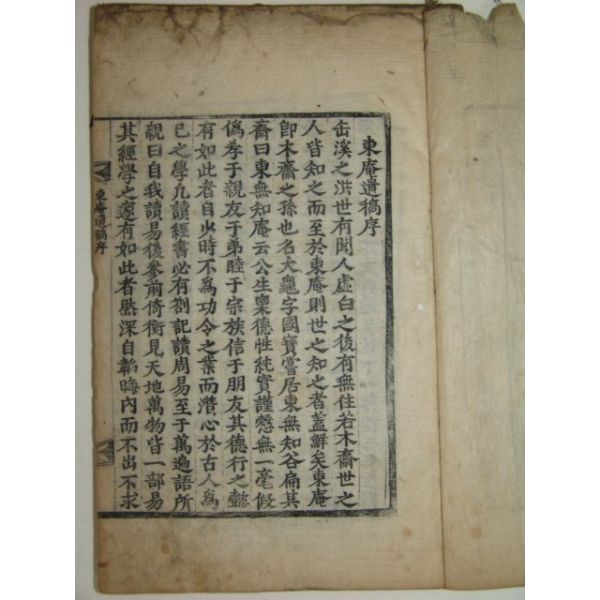 東庵遺稿序
缶溪之洪世有聞人虛白之後有無住若木齋世之
人皆知之而至於東庵則世之知之者蓋鮮矣東庵
卽木齋之孫也名大龜字國寶嘗居東無知谷扁其
齋曰東無知庵云公生稟德性純實謹慤無一毫假
僞孝于親友于弟睦于宗族信于朋友其德行之懿
有如此者自少時不爲功令之業而潛心於古人爲
已之學九讀經書必有劄記讀周易至于萬遍語所
親曰自我讀易後參前倚衡見天地萬物皆一部易
其經學之邃有如此者然深自韜晦內而不出不求
東庵遺稿序